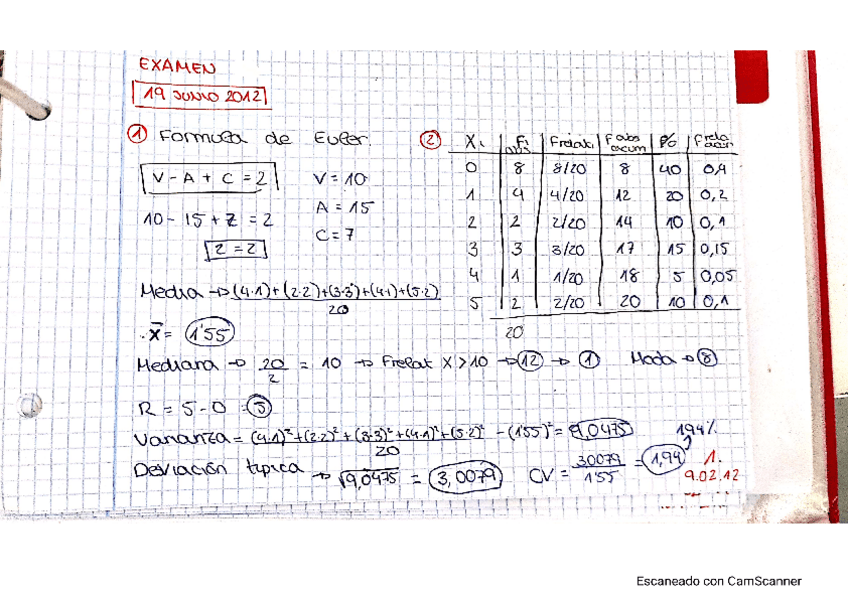 EXAMEN
19 JUNIO 2012
① Formula de Euler.
V - A + C = 2
V = 10
A = 15
C = 7
10 - 15 + Z = 2
Z = 2
② Xi Fi abs Frelat. F abs acum % F rela acum
0 8 8/20 8 40 0,4
1 4 4/20 12 20 0,2
2 2 2/20 14 10 0,1
3 3 3/20 17 15 0,15
4 1 1/20 18 5 0,05
5 2 2/20 20 10 0,1
20
Media → (4·1)+(2·2)+(3·3)+(4·1)+(5·2) / 20
x̄ = 1'55
Mediana → 20/2 = 10 → Frelat X > 10 → 12 → 1 Moda → 8
R = 5 - 0 = 5
Varianza = (4·1)²+(2·2)²+(3·3)²+(4·1)²+(5·2)² / 20 - (1'55)² = 9,0475
Desviación típica → √9,0475 = 3,0079 CV = 3,0079 / 1'55 = 1,94
194%
1.
9.02.12
Escaneado con CamScanner